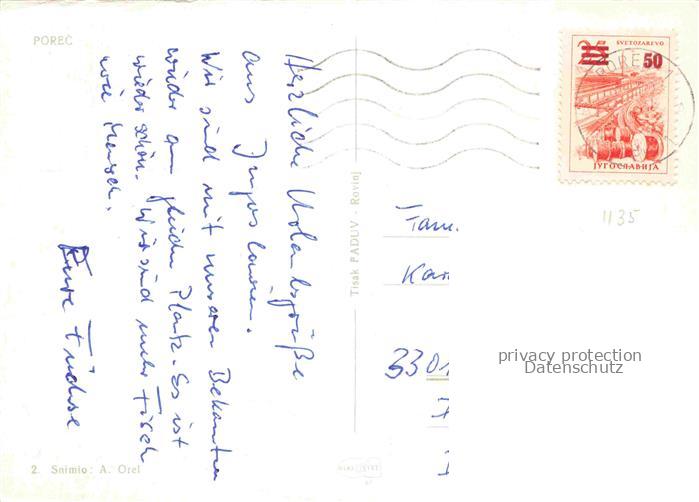 POREČ
Herzliche Urlaubsgrüße
aus Jugoslawien.
Wir sind mit unseren Bekannten
wieder am gleichen Platz. Es ist
wieder schön. Wir sind mehr Fisch
wie Mensch.
2. Snimio: A. Orel
Tisak PADUV - Rovinj
25
50
SVETOZAREVO
ЈУГОСЛАВИЈА
1135
Fam.
330
privacy protection
Datenschutz